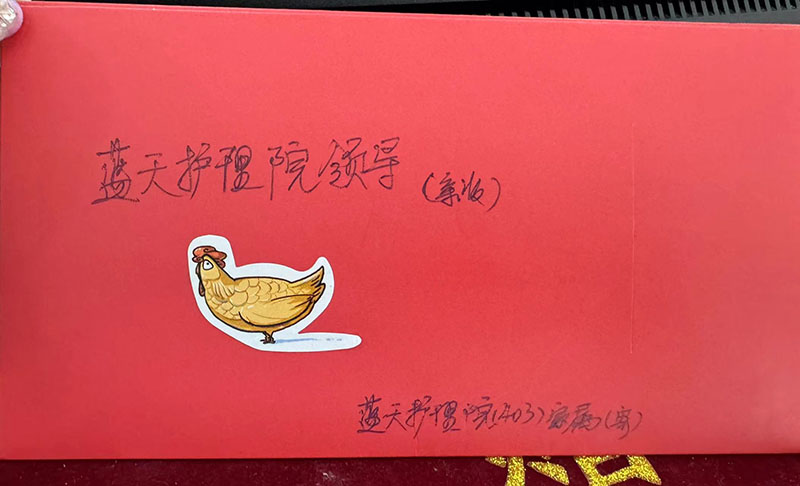 蓝天护理院领导(亲收)
蓝天护理院(403)家属(寄)